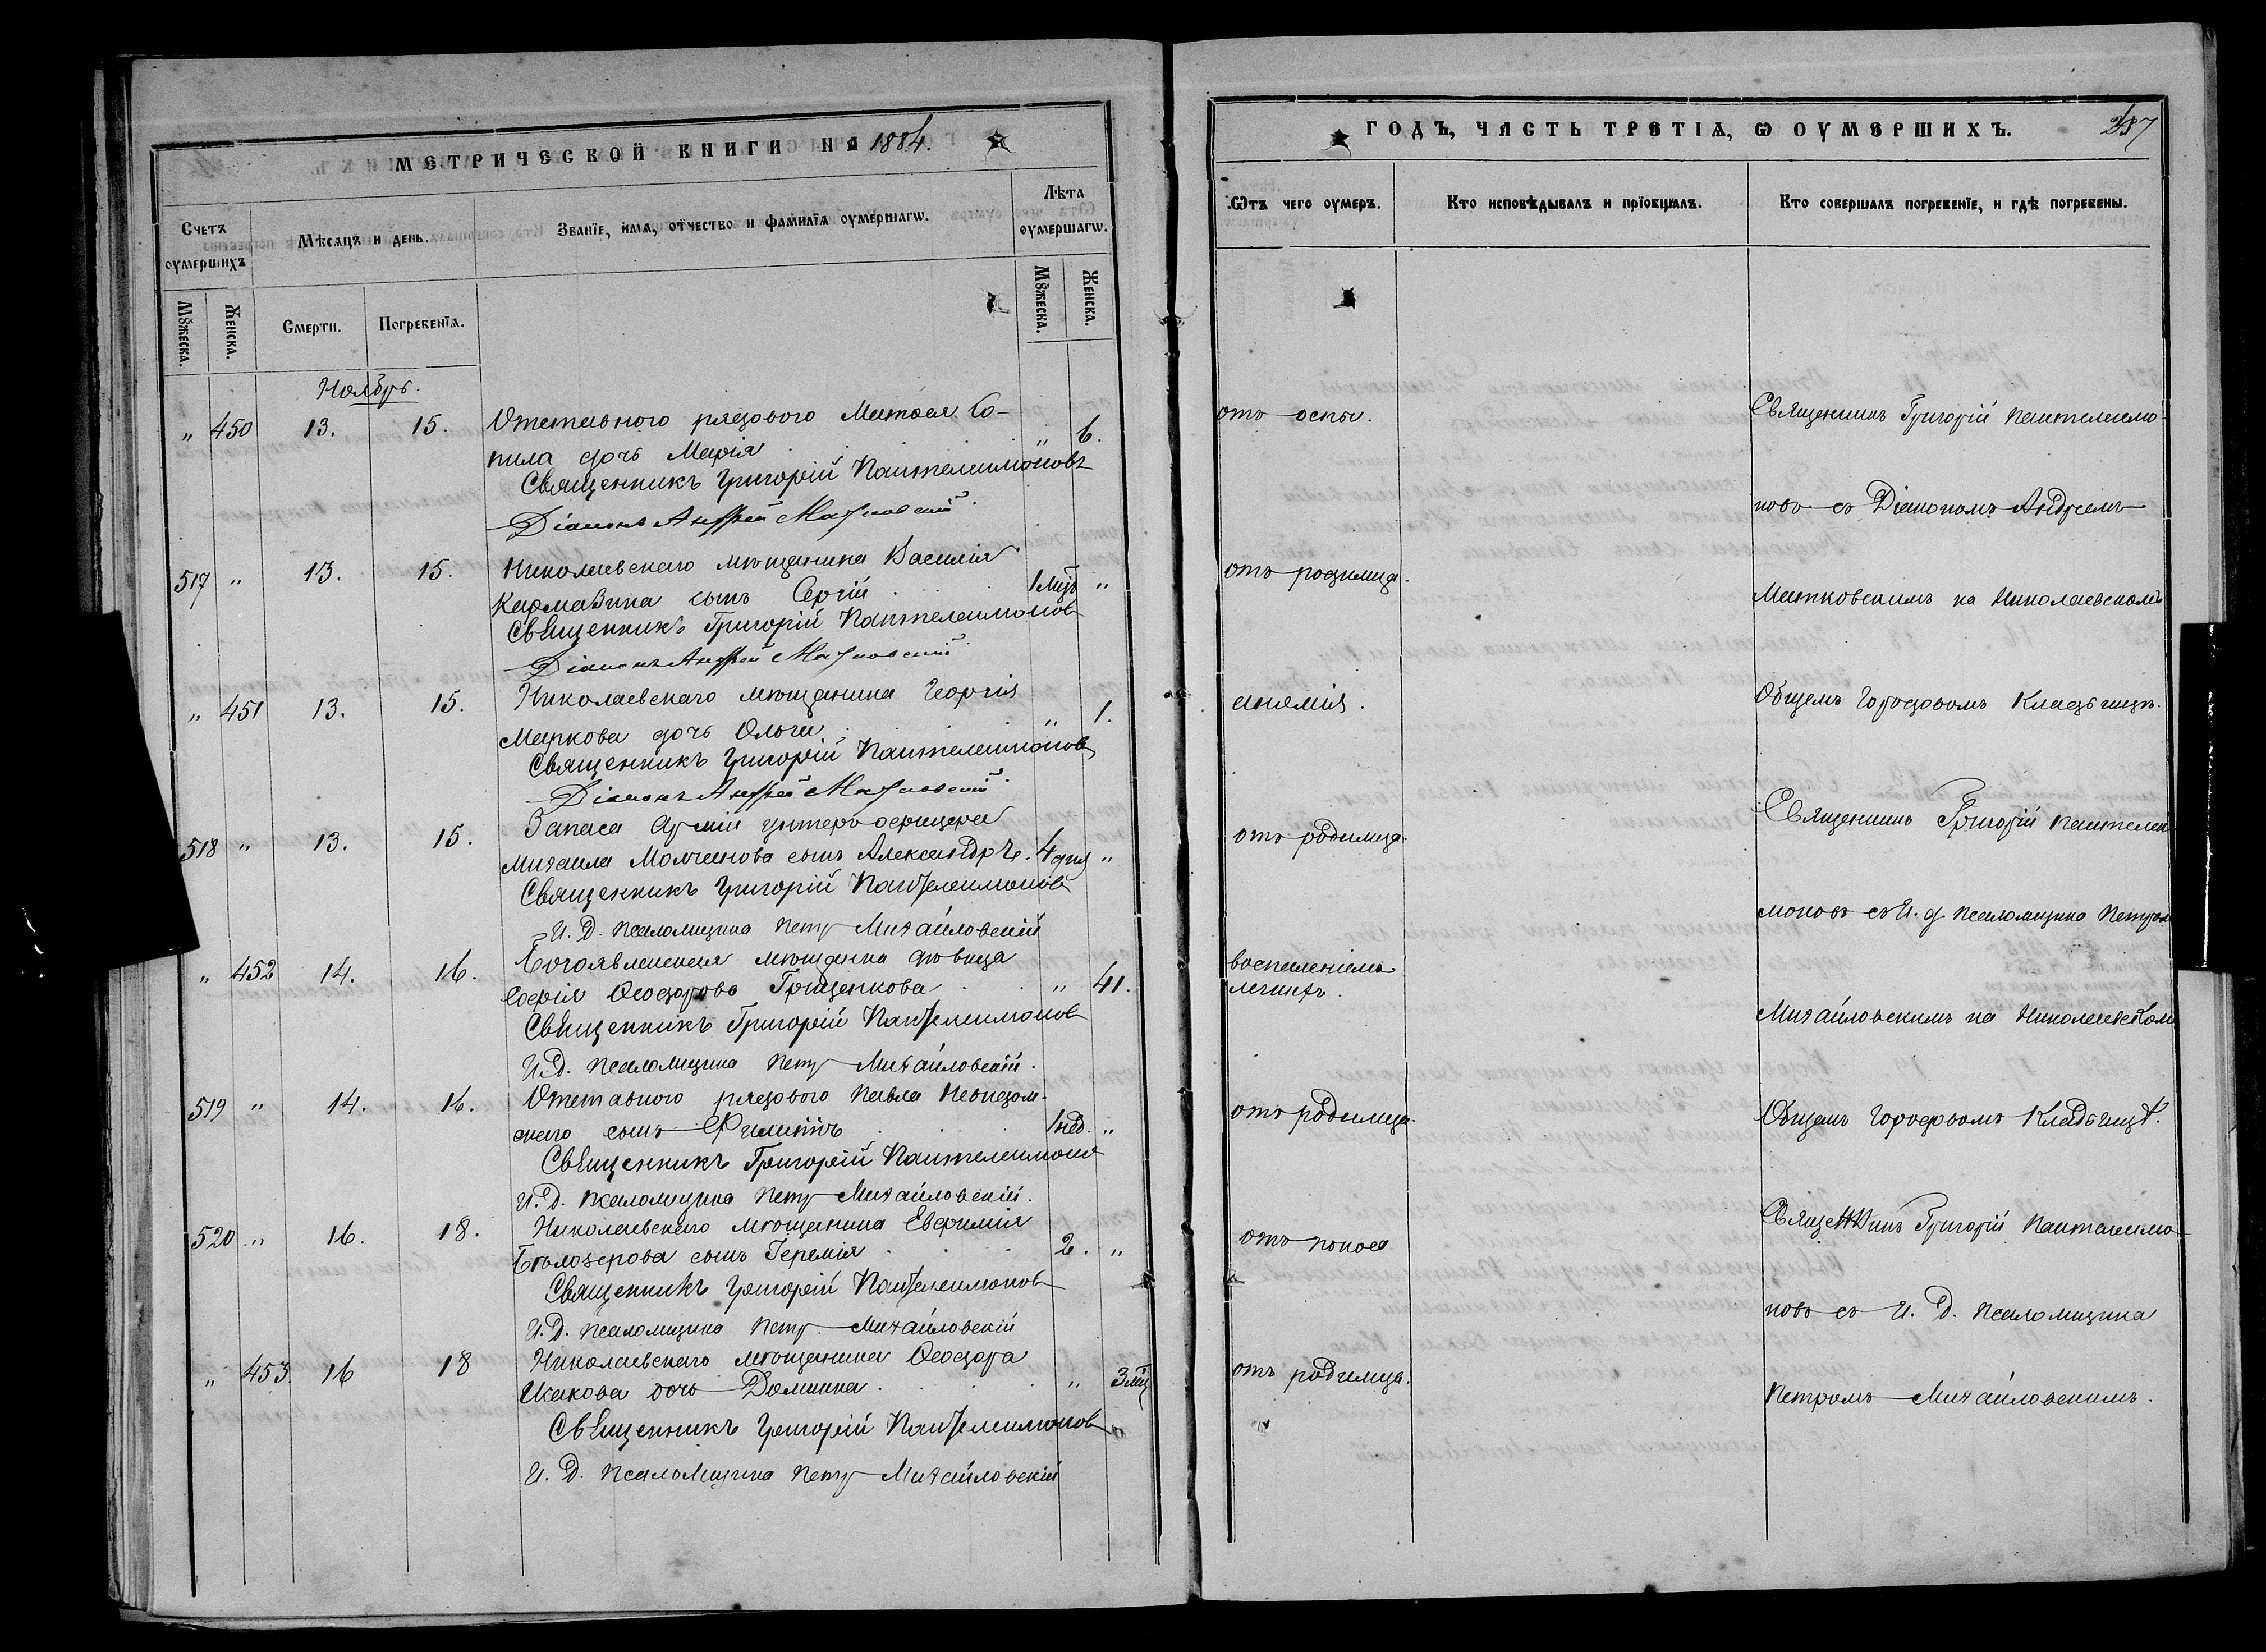 МЕТРИЧЕСКОЙ КНИГИ НА 1884.
Счетъ оумершихъ
Мѣсяцъ и день.
Званїе, имя, отчество и фамилїя оумершагѡ.
Лѣта оумершагѡ.
Мꙋжеска.
Женска.
Смерти.
Погребенїя.
Мꙋжеска.
Женска.
Ноябрь.
" 450 13. 15. Отставного рядового Матвея Со-
пила дочь Марія " 6.
Священникъ Григорій Пантелеимоновъ
Діаконъ Андрей Матковскій
517 " 13. 15. Николаевскаго мѣщанина Василія
Кармазина сынъ Сергій 1 мцъ "
Священникъ Григорій Пантелеимоновъ
Діаконъ Андрей Матковскій
" 451 13. 15. Николаевскаго мѣщанина Георгія
Маркова дочь Ольга " 1.
Священникъ Григорій Пантелеимоновъ
Діаконъ Андрей Матковскій
518 " 13. 15. Запаса Арміи унтеръ офицера
Михаила Молчанова сынъ Александръ. 4 дня "
Священникъ Григорій Пантелеимоновъ
И. Д. псаломщика Петръ Михайловскій
" 452 14. 16. Богоявленская мѣщанка дѣвица
Софія Ѳеодорова Грищенкова " 41.
Священникъ Григорій Пантелеимоновъ
И. Д. псаломщика Петръ Михайловскій.
519 " 14. 16. Отставного рядового Павла
сынъ Филиппъ 1 нед. "
Священникъ Григорій Пантелеимоновъ
И. Д. псаломщика Петръ Михайловскій.
520 " 16. 18. Николаевскаго мѣщанина Евфимія
Бѣлозерова сынъ Іеремія 2. "
Священникъ Григорій Пантелеимоновъ
И. Д. псаломщика Петръ Михайловскій
" 453. 16 18 Николаевскаго мѣщанина Ѳеодора
дочь Домника " 3 мц
Священникъ Григорій Пантелеимоновъ
И. Д. псаломщика Петръ Михайловскій
ГОДЪ, ЧАСТЬ ТРЕТІѦ, Ѡ ОУМЕРШИХЪ.
Ѿтъ чего оумеръ.
Кто исповѣдывалъ и прїобщалъ.
Кто совершалъ погребенїе, и гдѣ погребены.
отъ оспы.
Священникъ Григорій Пантелеимо-
новъ съ Діакономъ Андреемъ
отъ родимца.
Матковскимъ на Николаевскомъ
анемія.
Общемъ Городовомъ Кладбищѣ.
отъ родимца.
Священникъ Григорій Пантелеи
моновъ съ И. д. псаломщика Петромъ
воспаленіемъ
легкихъ.
Михайловскимъ на Николаевскомъ
отъ родимца.
Общемъ Городовомъ Кладбищѣ.
отъ поноса
Священникъ Григорій Пантелеимо-
новъ съ И. Д. псаломщика
отъ родимца.
Петромъ Михайловскимъ.